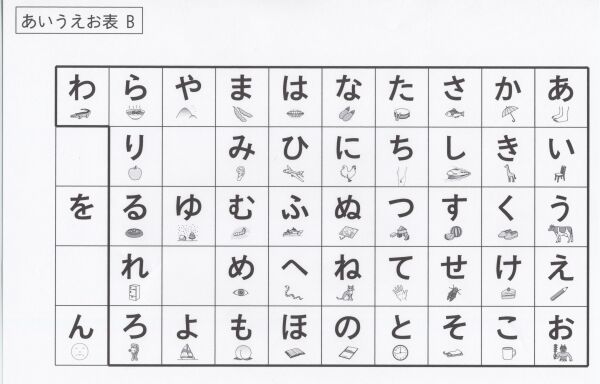 あいうえお表 B
わ ら や ま は な た さ か あ
り み ひ に ち し き い
を る ゆ む ふ ぬ つ す く う
れ め へ ね て せ け え
ん ろ よ も ほ の と そ こ お